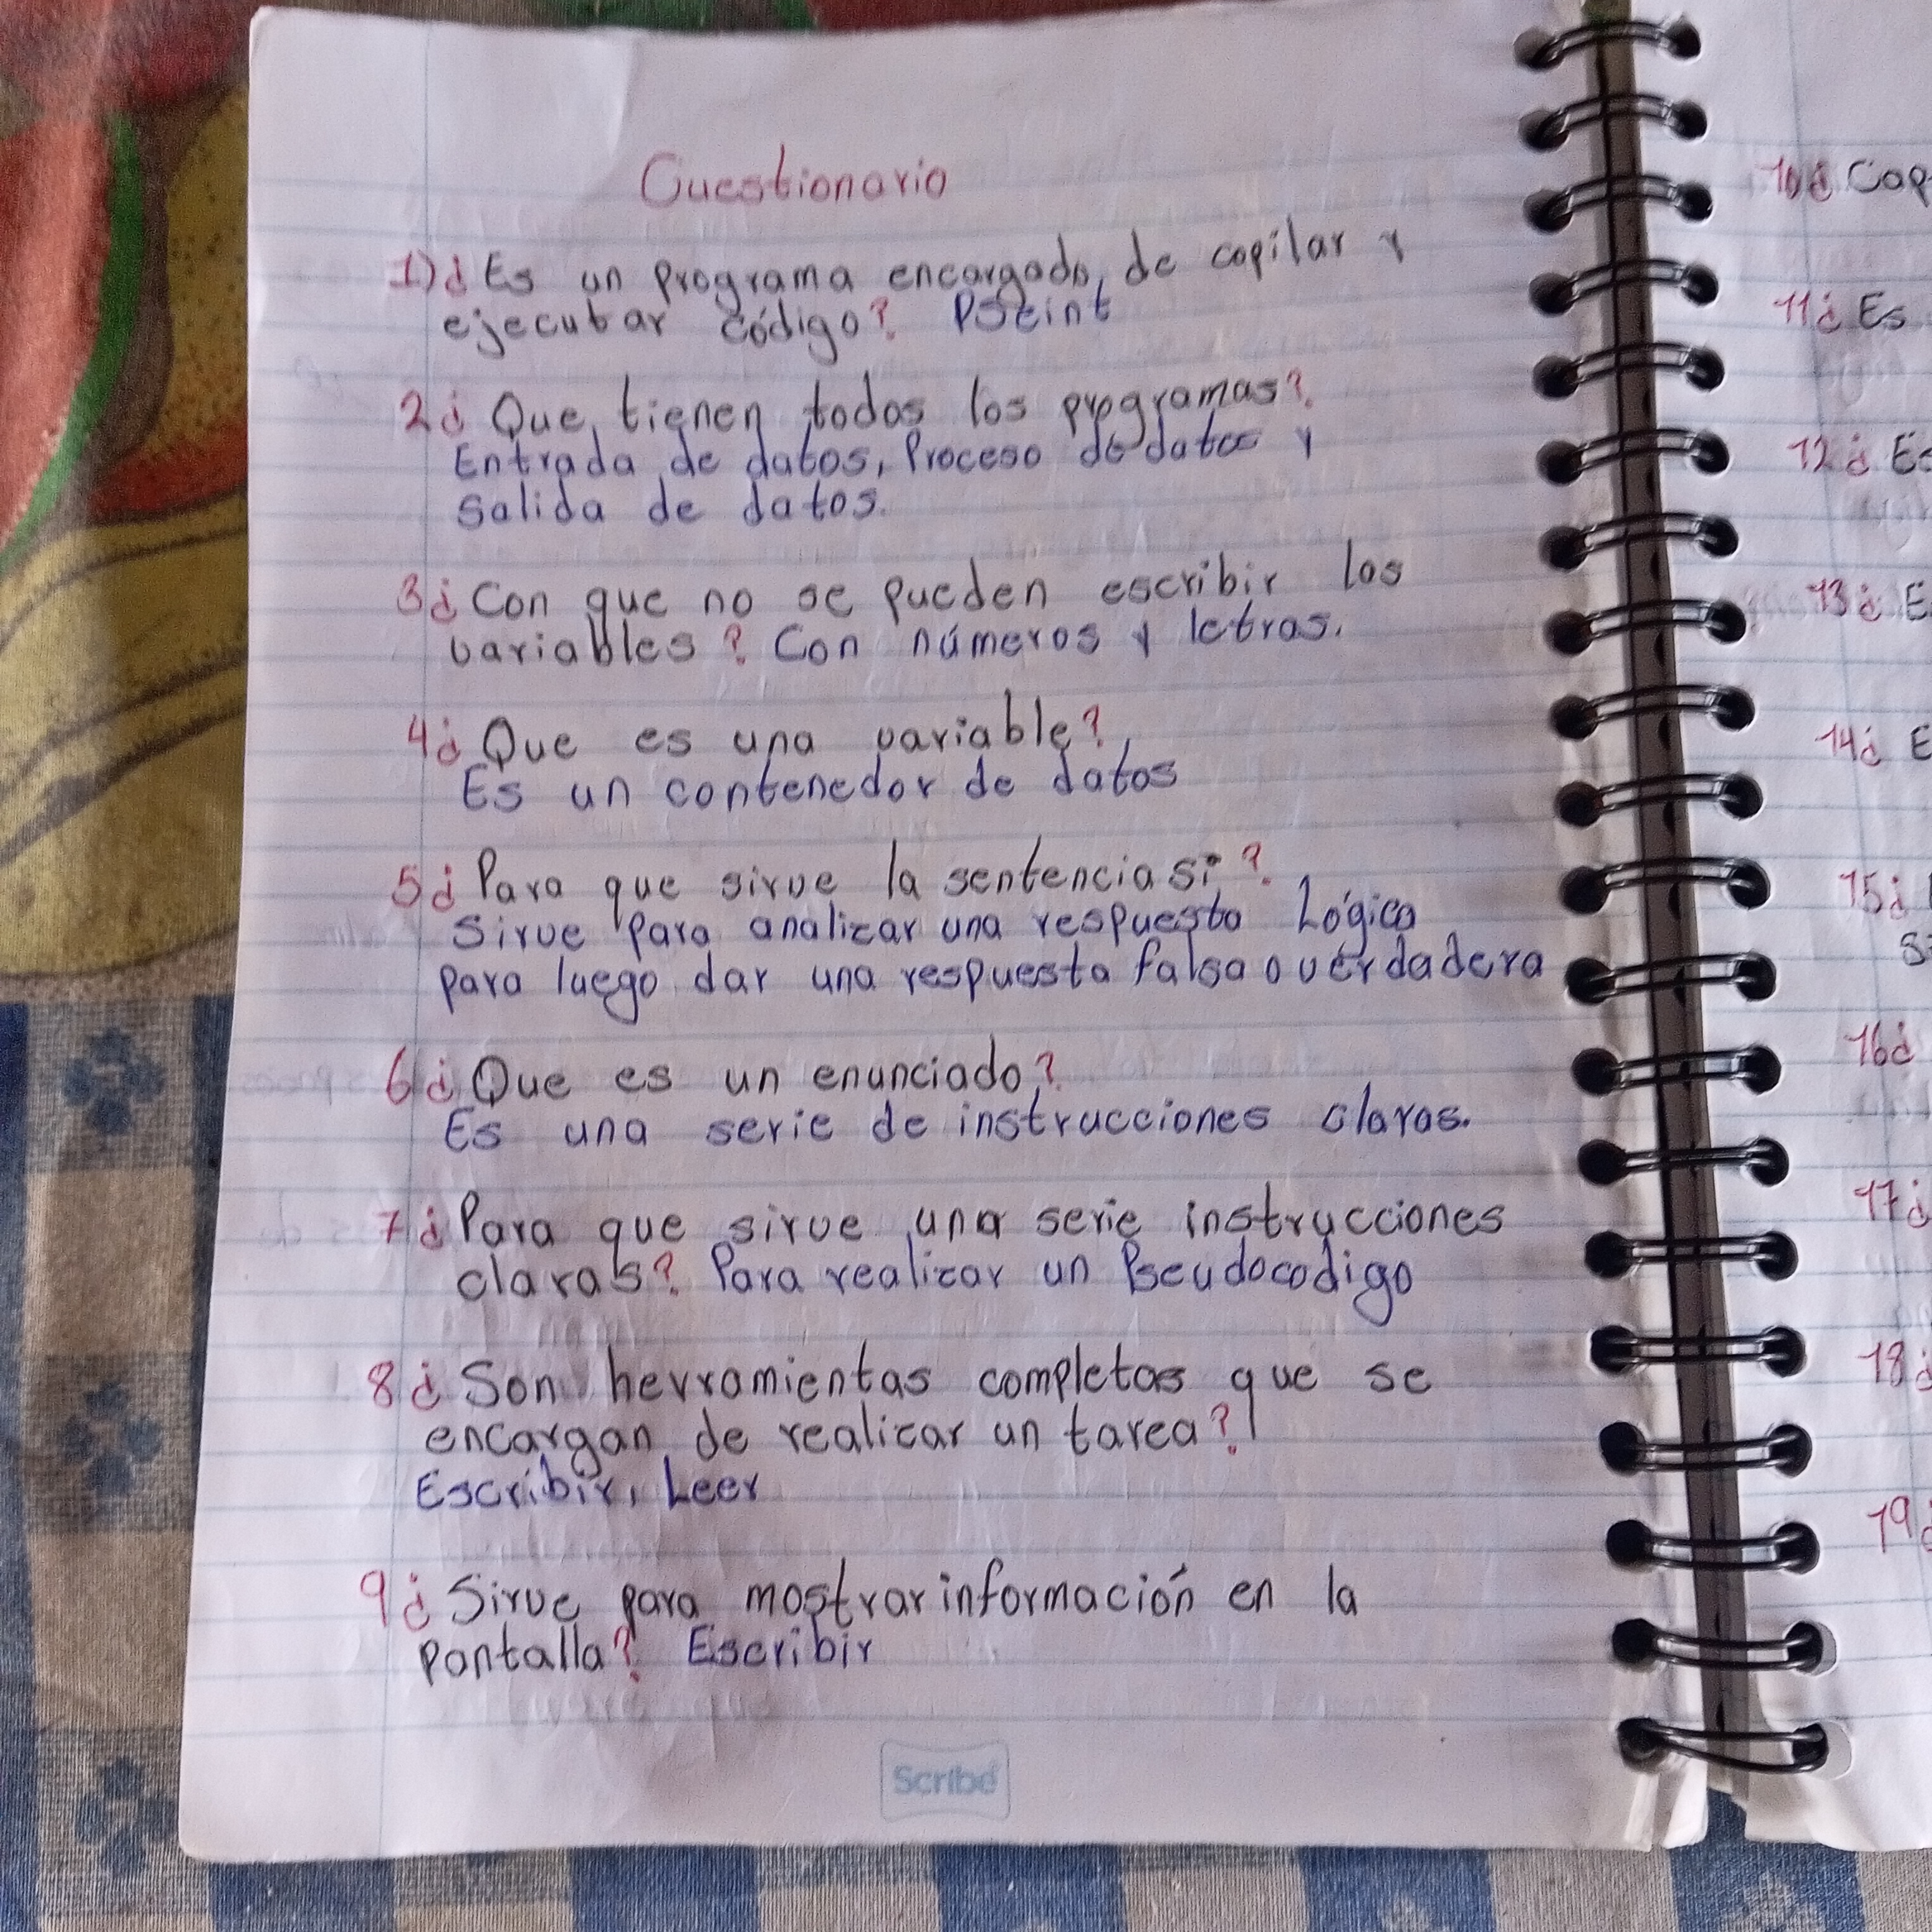 Cuestionario
1)¿Es un programa encargado, de copilar y
ejecutar código? PSeint
2¿ Que tienen todos los programas?
Entrada de datos, Proceso de datos y
salida de datos.
3¿Con que no se pueden escribir las
variables? Con números y letras.
4¿Que es una variable?
Es un contenedor de datos
5¿Para que sirve la sentencia si?
Sirve para analizar una respuesta Lógica
para luego dar una respuesta falsa o verdadera
6¿Que es un enunciado?
Es una serie de instrucciones claras.
7¿Para que sirve una serie instrucciones
claras? Para realizar un Pseudocodigo
8¿Son herramientas completas que se
encargan de realizar un tarea?
Escribir, Leer
9¿Sirve para mostrar información en la
pantalla? Escribir
Scribe
10¿ Cap
11¿ Es
12¿ Es
13¿ E
14¿ E
15¿
16¿
17¿
18¿
19¿